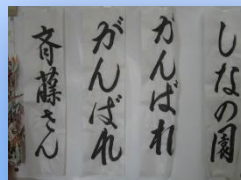 しなの園
がんばれ
がんばれ
斉藤さん